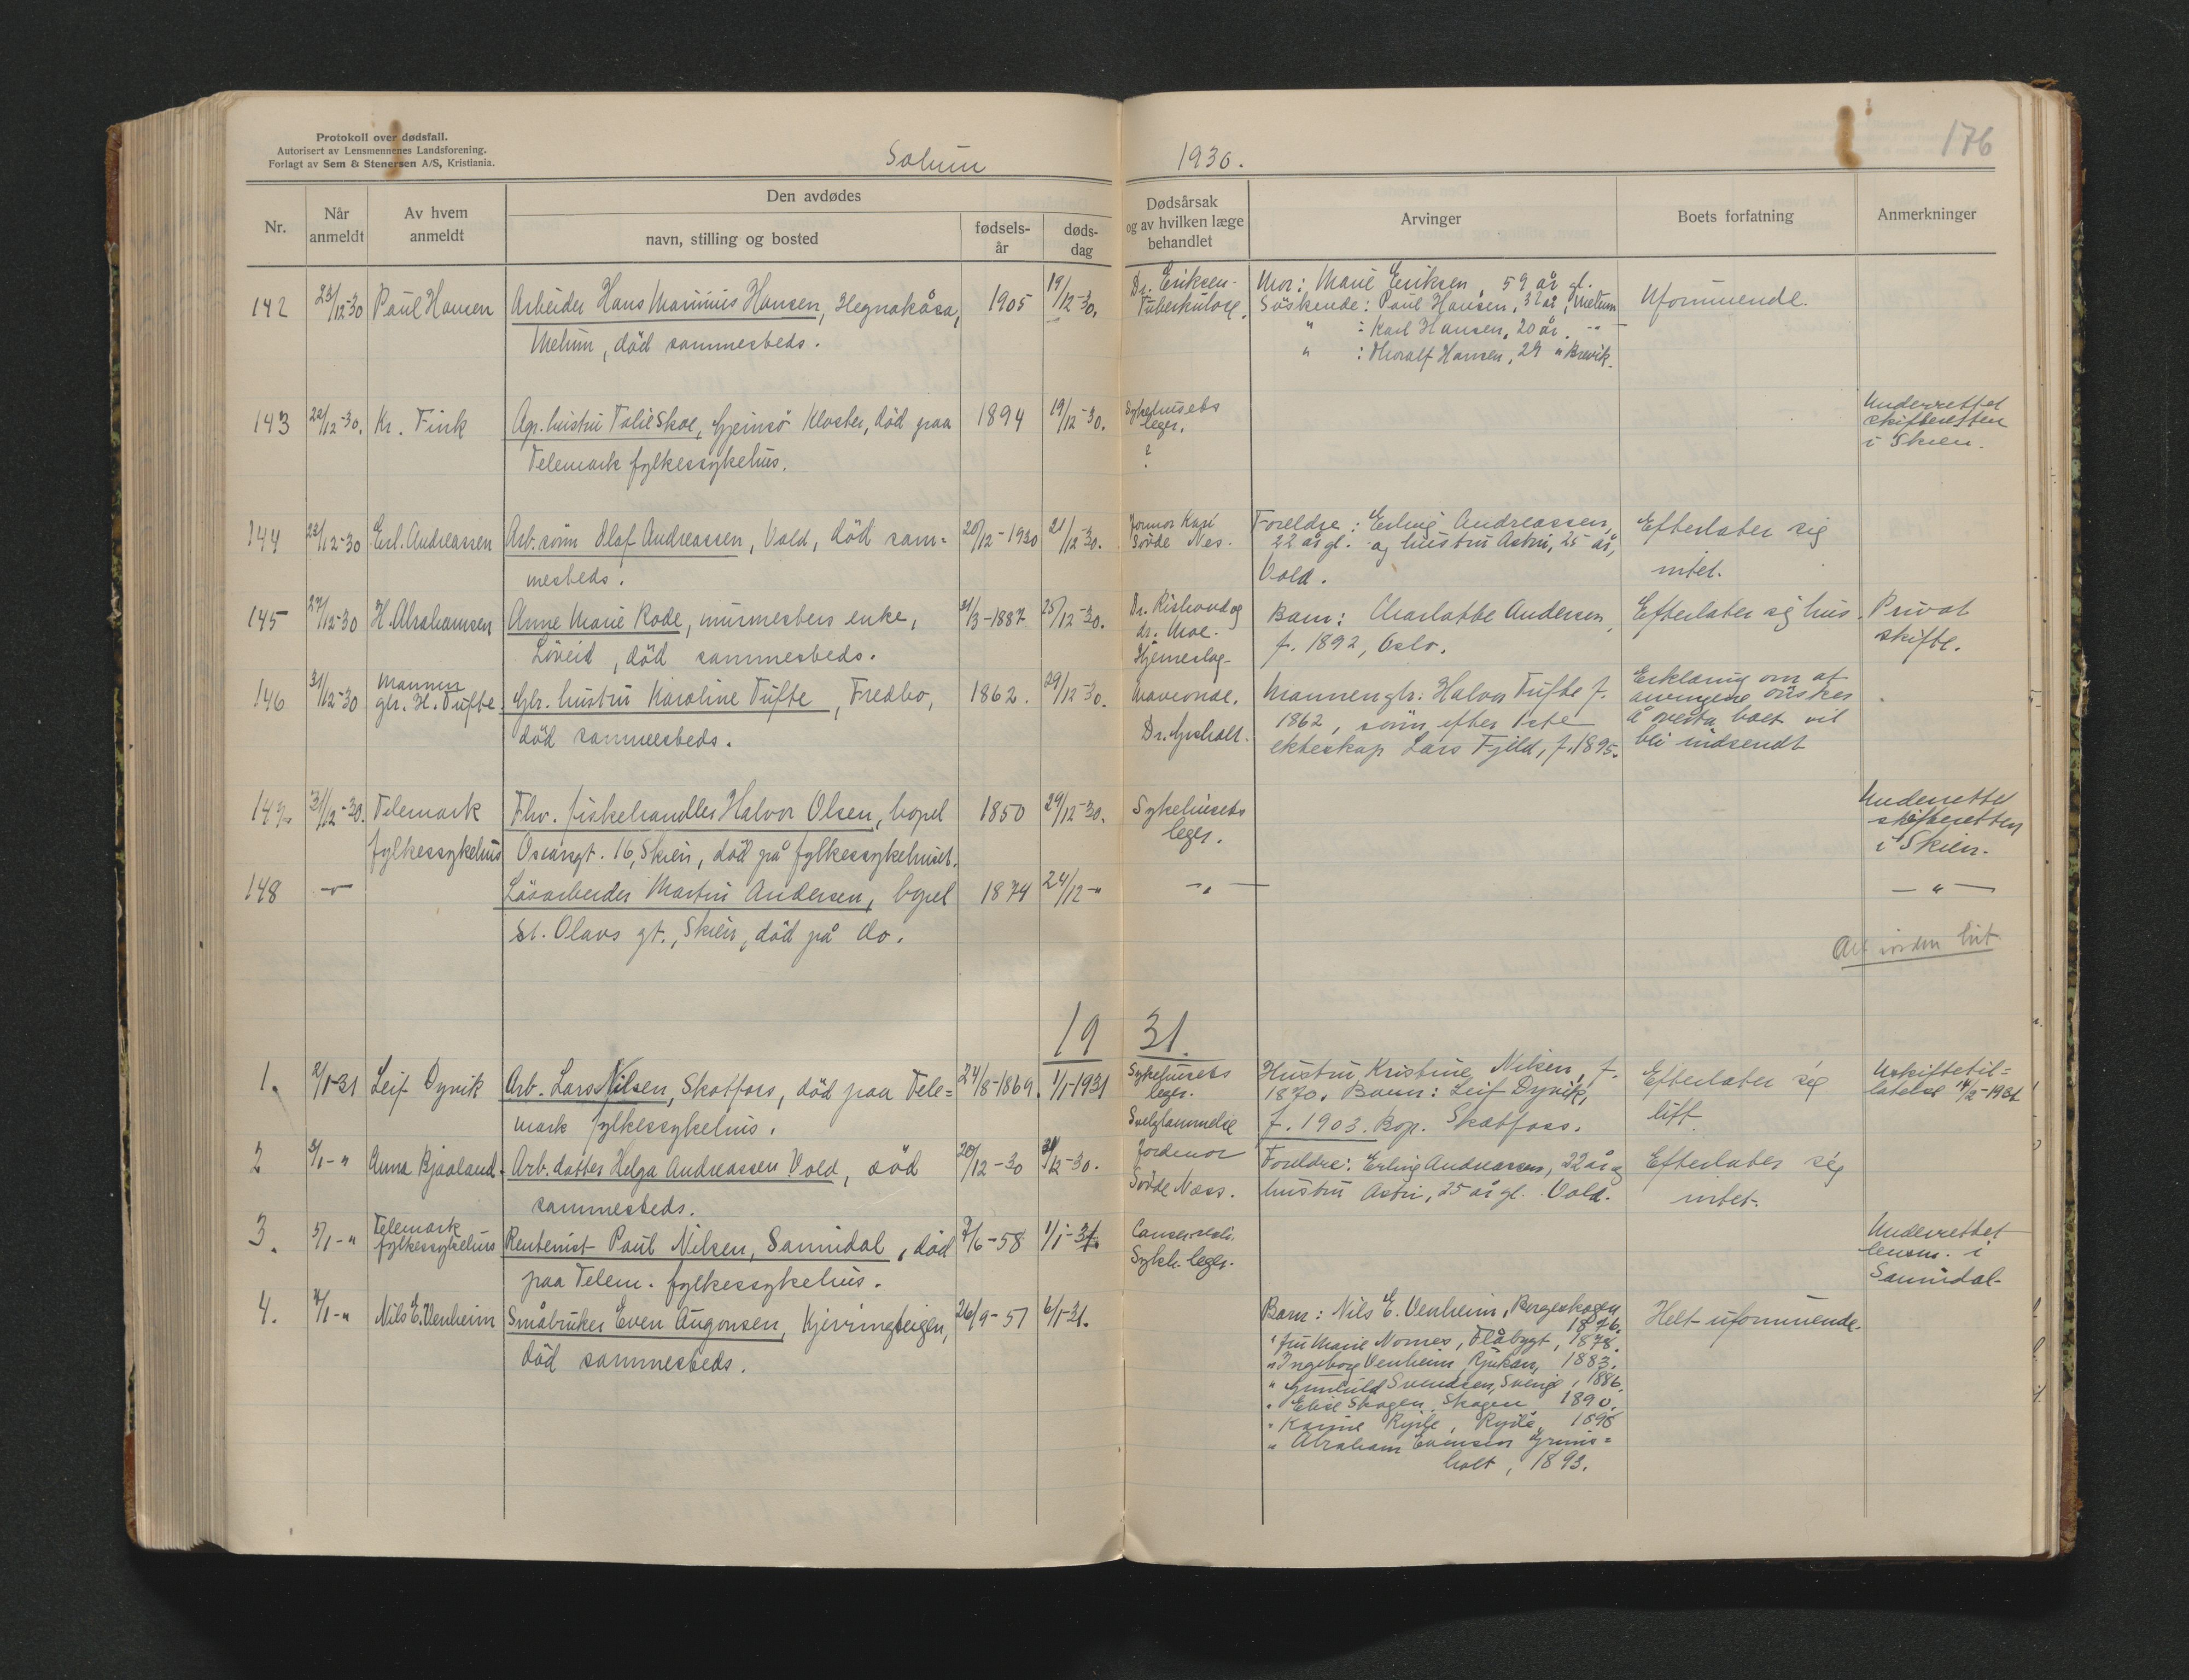 Protokoll over dødsfall.
Autorisert av Lensmennenes Landsforening.
Forlagt av Sem & Stenersen A/S, Kristiania.
Solum
1930.
176
Nr.
Når anmeldt
Av hvem anmeldt
Den avdødes
navn, stilling og bosted
fødsels-år
døds-dag
Dødsårsak og av hvilken læge behandlet
Arvinger
Boets forfatning
Anmerkninger
142 23/12-30 Paul Hansen Arbeider Hans Marinius Hansen, Hegnakåsa, 1905 19/12-30. Dr. Eriksen- Mor: Marie Eriksen, 59 år gl. Uformuende.
Melum, död sammesteds. Tuberkulose. Söskende: Paul Hansen, 32 år, Melum
" : Karl Hansen, 20 år. -"-
" : Thoralf Hansen, 29 " Brevik.
143 22/12-30. Kr. Fink Agr. hustru Talie Skoe, Gjemsö Kloster, död paa 1894 19/12-30. Sykehusets Underrettet
Telemark fylkessykehus. leger. skifteretten
? i Skien.
144 22/12-30 Erl. Andreassen Arb. sönn Olaf Andreassen, Vold, död sam= 20/12-1930 21/12-30. Jormor Kari Foreldre: Erling Andreassen, Efterlater sig
mesteds. Sövde Nes. 22 år gl. og hustru Astri, 25 år, intet.
Vold.
145 27/12-30 H. Abrahamsen Anne Marie Rode, murmesters enke, 31/3-1887 25/12-30. Dr. Rishovd og Barn: Charlotte Andersen, Efterlater sig hus. Privat
Löveid, död sammesteds. dr. Moe. f. 1892, Oslo. skifte.
Hjerneslag-
146 31/12-30 Mannen Gbr. hustru Karoline Tufte, Fredbo, 1862. 29/12-30. Maveonde. Mannen gbr. Halvor Tufte f. Erklæring om at
gbr. H. Tufte. död sammesteds. Dr. Gjsholt. 1862, sönn efter 1ste arvingene önsker
ekteskap Lars Fjeld, f. 1895. å overta boet vil
bli indsendt
147. 31/12-30. Telemark Fhv. fiskehandler Halvor Olsen, bopel 1850 29/12-30. Sykehusets Underrettet
fylkessykehus Oscarsgt. 16, Skien, död på fylkessykehuset. leger. skifteretten
i Skien.
148 -"- Lösarbeider Martin Andersen, bopel 1874 24/12-" -"- -"-
St. Olavs gt., Skien, död på do.
19 31.
1. 2/1-31 Leif Dyvik Arb. Lars Nilsen, Skotfoss, död paa Tele= 24/8-1869. 1/1-1931 Sykehusets Hustru Kristine Nilsen, f. Efterlater sig Uskiftetil=
mark fylkessykehus. leger. 1870. Barn: Leif Dyvik, litt. latelse 14/2-1931
Svelglammelse f. 1903. Bop. Skotfoss.
2 3/1-" Anna Bjaaland. Arb. datter Helga Andreassen Vold, död 20/12-30 31/12-30. Jordmor Foreldre: Erling Andreassen, 22 år og Efterlater sig
sammesteds. Sövde Næss. hustru Astri, 25 år gl. Vold. intet.
3. 5/1-" Telemark Rentenist Paul Nilsen, Sannidal, död 7/6-58 1/1-31. Underrettet
fylkessykehus paa Telem. fylkessykehus. Sykeh. leger. lensm. i
Sannidal-
4. 7/1-" Nils E. Venheim Småbruker Even Augonsen, Kjerringteigen, 26/9-51 6/1-31. Barn: Nils E. Venheim, Bergeskogen Helt uformuende.
död sammesteds. 1876.
" fru Marie Nomes, Flåbygt, 1878.
" Ingeborg Venheim, Rjukan, 1883.
" Gunhild Svendsen, Sverige, 1886.
" Elise Skogen, Skogen, 1890.
" Karine 1898
" Abraham Evensen Grinis=
holt, 1893.